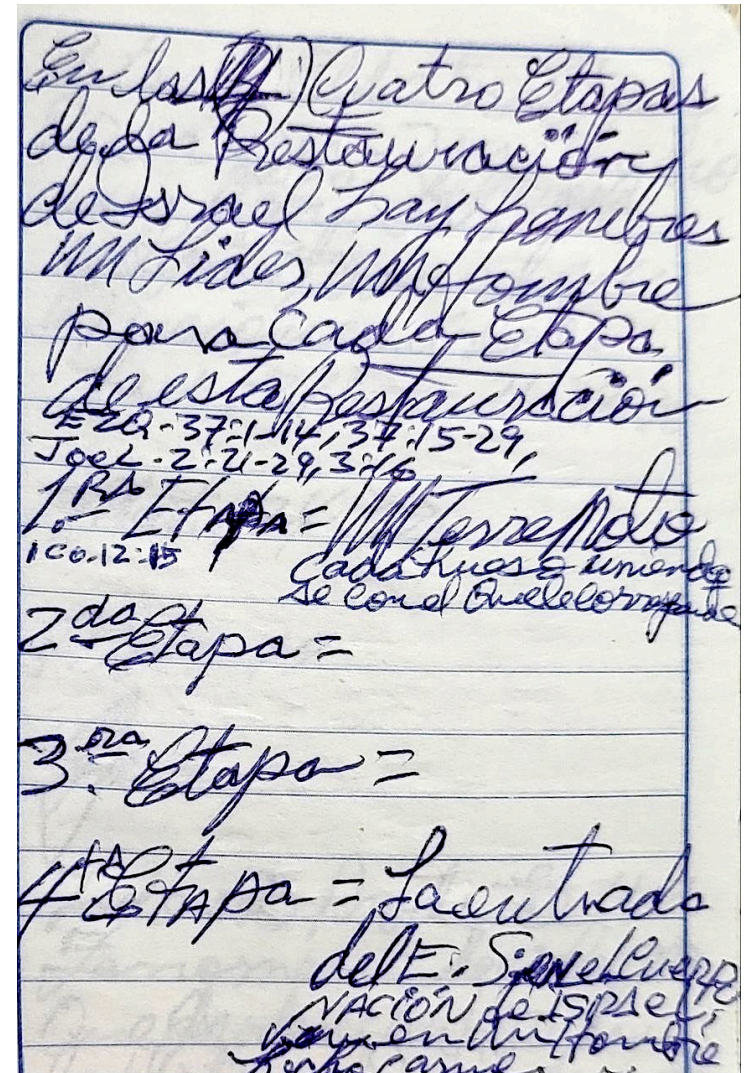 En las (4) Cuatro Etapas
de la Restauración
de Israel hay hombres
un Lider, un Hombre
para cada Etapa
de esta Restauración
EZQ-37:1-14, 37:15-29,
JOEL-2:21-29, 3:16
1.RA Etapa = Un Terremoto
1CO.12:15 cada hueso uniendo
se con el Que le corresponde
2da Etapa =
3.ra Etapa =
4ta Etapa = La entrada
del E. S. en el Cuerpo
NACIÓN de ISRAEL;
en un Hombre
hecho carne